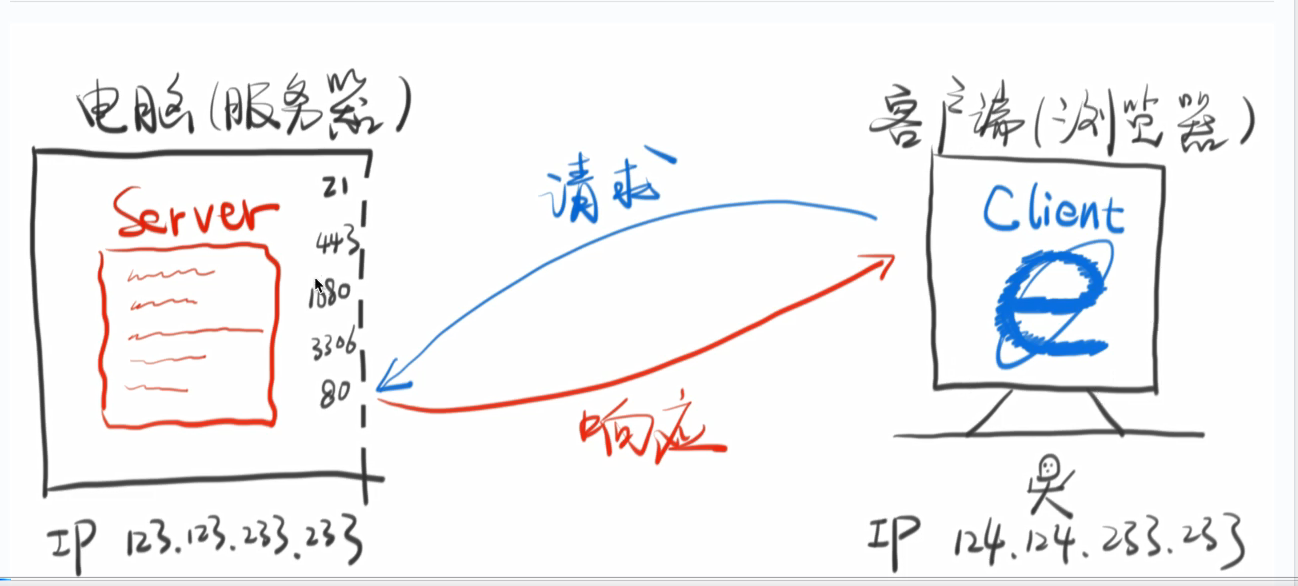 电脑(服务器)
Server
21
443
1080
3306
80
IP 123.123.233.233
请求
响应
客户端(浏览器)
Client
e
IP 124.124.233.233